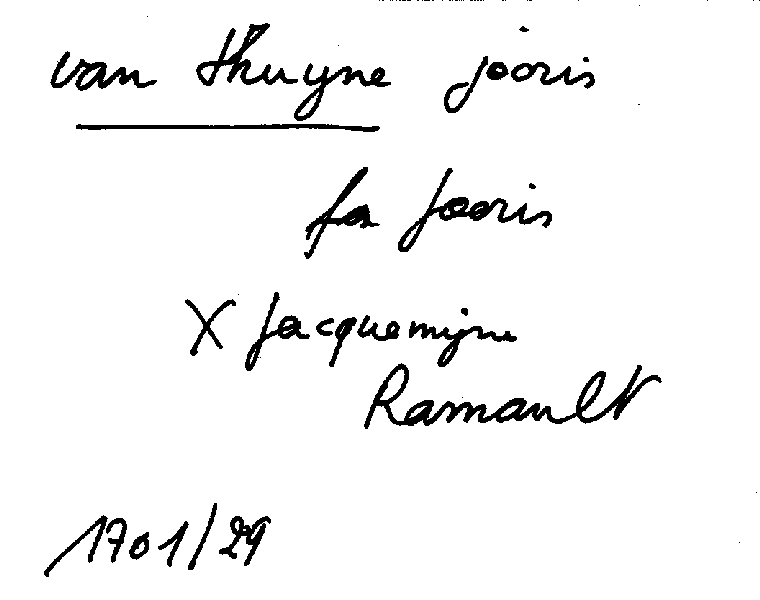 van thuyne jooris
fa Jooris
X Jacquemijne
Ramault
1701/29